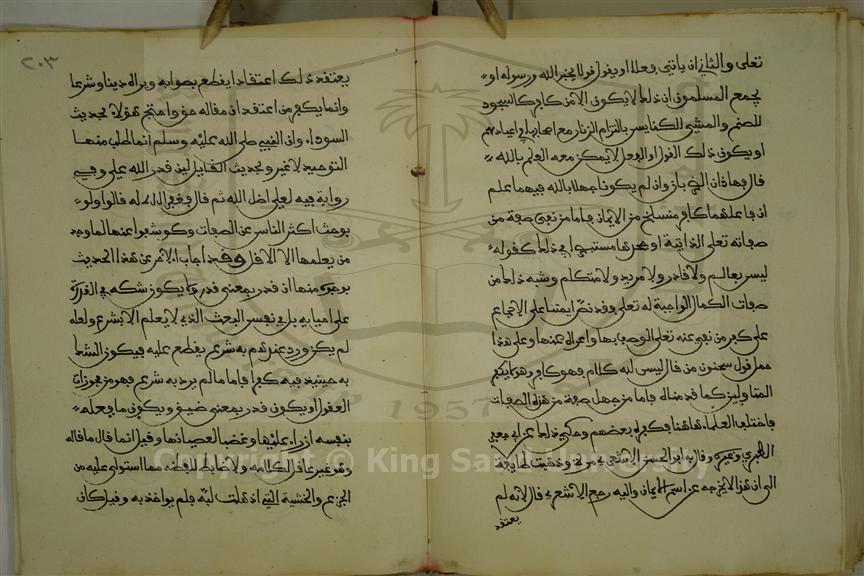 تعلى والثانى ان ياتي بفعل او يقول قولا يخبر الله ورسوله او
يجمع المسلمون ان ذلك لا يكون الا من كافر كالسجود
للصنم والمشي للكنايس بالتزام الزنار مع اصحابها في اعيادهم
او يكون ذلك القول او الفعل لا يمكن معه العلم بالله
قال فهاذان الضربان وان لم يكونا جهلا بالله فهما علم
ان فاعلهما كافر منسلخ من الايمان فاما من نفى صفة من
صفاته تعلى الذاتية او جحدها مستبصرا في ذلك كقوله
ليس بعالم ولا قادر ولا مريد ولا متكلم وشبه ذلك من
صفات الكمال الواجبة له تعلى فقد نص ايمتنا على الاجماع
على كفر من نفى عنه تعلى الوصف بها واعراه عنها وعلى هذا
حمل قول سحنون من قال ليس لله كلام فهو كافر وهو لا يكفر
المتاولين كما قدمناه فاما من جهل صفة من هذه الصفات
فاختلف العلماء هاهنا فكفره بعضهم وحكي ذلك عن ابي جعفر
الطبري وغيره وقال به ابو الحسن الاشعري مرة وذهبت طايفة
الى ان هذا لا يخرجه عن اسم الايمان واليه رجع الاشعري قال لانه لم
يعتقد
٢٠٣
يعتقد ذلك اعتقادا يقطع بصوابه ويراه دينا وشرعا
وانما يكفر من اعتقد ان مقاله حق واحتج هؤلاء بحديث
السوداء وان النبي صلى الله عليه وسلم انما طلب منها
التوحيد لا غير وبحديث القايل لين قدر الله علي وفي
رواية فيه لعلي اضل الله ثم قال فغفر الله له قالوا ولو
بوحث اكثر الناس عن الصفات وكوشفوا عنها لما وجد
من يعلمها الا الاقل وقد اجاب الاخر عن هذا الحديث
بوجوه منها ان قدر بمعنى قدر ولا يكون شكه في القدرة
على احيايه بل في نفس البعث الذي لا يعلم الا بشرع ولعله
لم يكن ورد عندهم به شرع يقطع عليه فيكون الشك
به حينيذ فيه كفرا فاما ما لم يرد به شرع فهو من مجوزات
العقول او يكون قدر بمعنى ضيق ويكون ما فعله
بنفسه ازراء عليها وغضبا لعصيانها وقيل انما قال ما قاله
وهو غير عاقل لكلامه ولا ضابط للفظه مما استولى عليه من
الجزع والخشية التي اذهلت لبه فلم يواخذ به وقيل كان
Copyright © King Saud University
1957